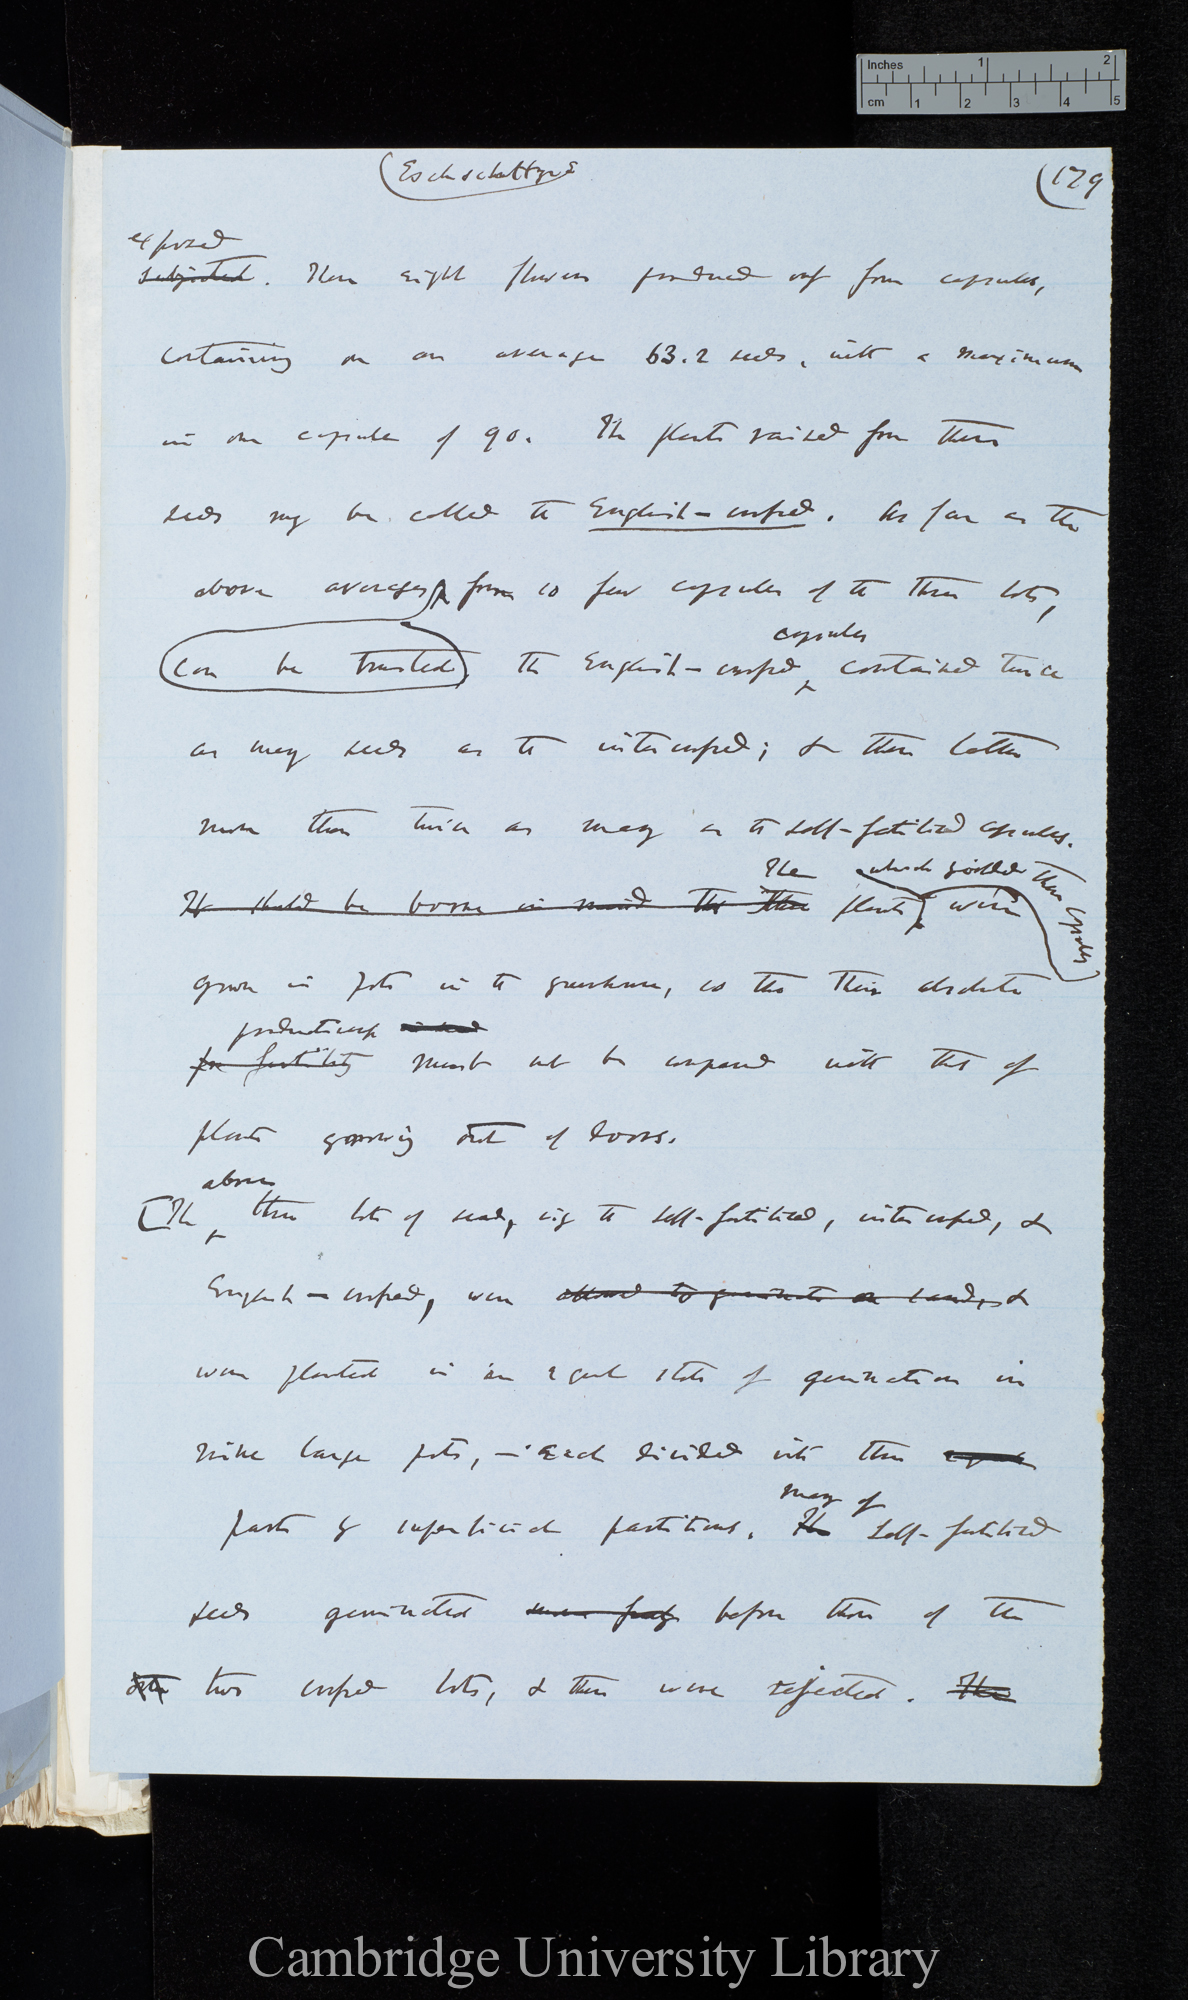 Inches 1 2
cm 1 2 3 4 5
(Eschscholtzia
(179
exposed
subjected. These eight flowers produced only four capsules,
containing on an average 63.2 seeds, with a maximum
in one capsule of 90. The plants raised from these
seeds may be called the English-crossed. As far as the
above averages, from so few capsules of the three lots,
capsules
can be trusted, the English-crossed contained twice
as many seeds as the intercrossed; & these latter
more than twice as many as the self-fertilised capsules.
The which yielded these capsules
It should be borne in mind that these plants, were
grown in pots in the greenhouse, so that their absolute
productiveness
for fertility must not be compared with that of
plants growing out of doors.
above
[The three lots of seeds, viz the self-fertilised, intercrossed, &
English-crossed, were allowed to germinate on sand, &
were planted in an equal state of germination in
nine large pots, — each divided into three equal
many of
parts by superficial partitions. The self-fertilised
seeds germinated before those of the
two crossed lots, & these were rejected. The
Cambridge University Library